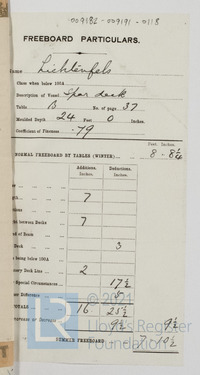 009182 - 009191 - 0118
FREEBOARD PARTICULARS.
Name Lichtenfels
Class when below 100A
Description of Vessel Spar deck
Table B No. of page 37
Moulded Depth 24 Feet 0 Inches.
Coefficient of Fineness .79
Feet Inches
NORMAL FREEBOARD BY TABLES (WINTER) 8 - 8¼
Additions. Deductions.
Inches. Inches.
7
between Decks 7
3
being below 100A
Deck Line 2
Special Circumstances 17½
Difference 5
TOTALS 16 25½
Increase or Decrease 9½ 9½
SUMMER FREEBOARD 7 10½
© 2021
Lloyd's Register
Foundation